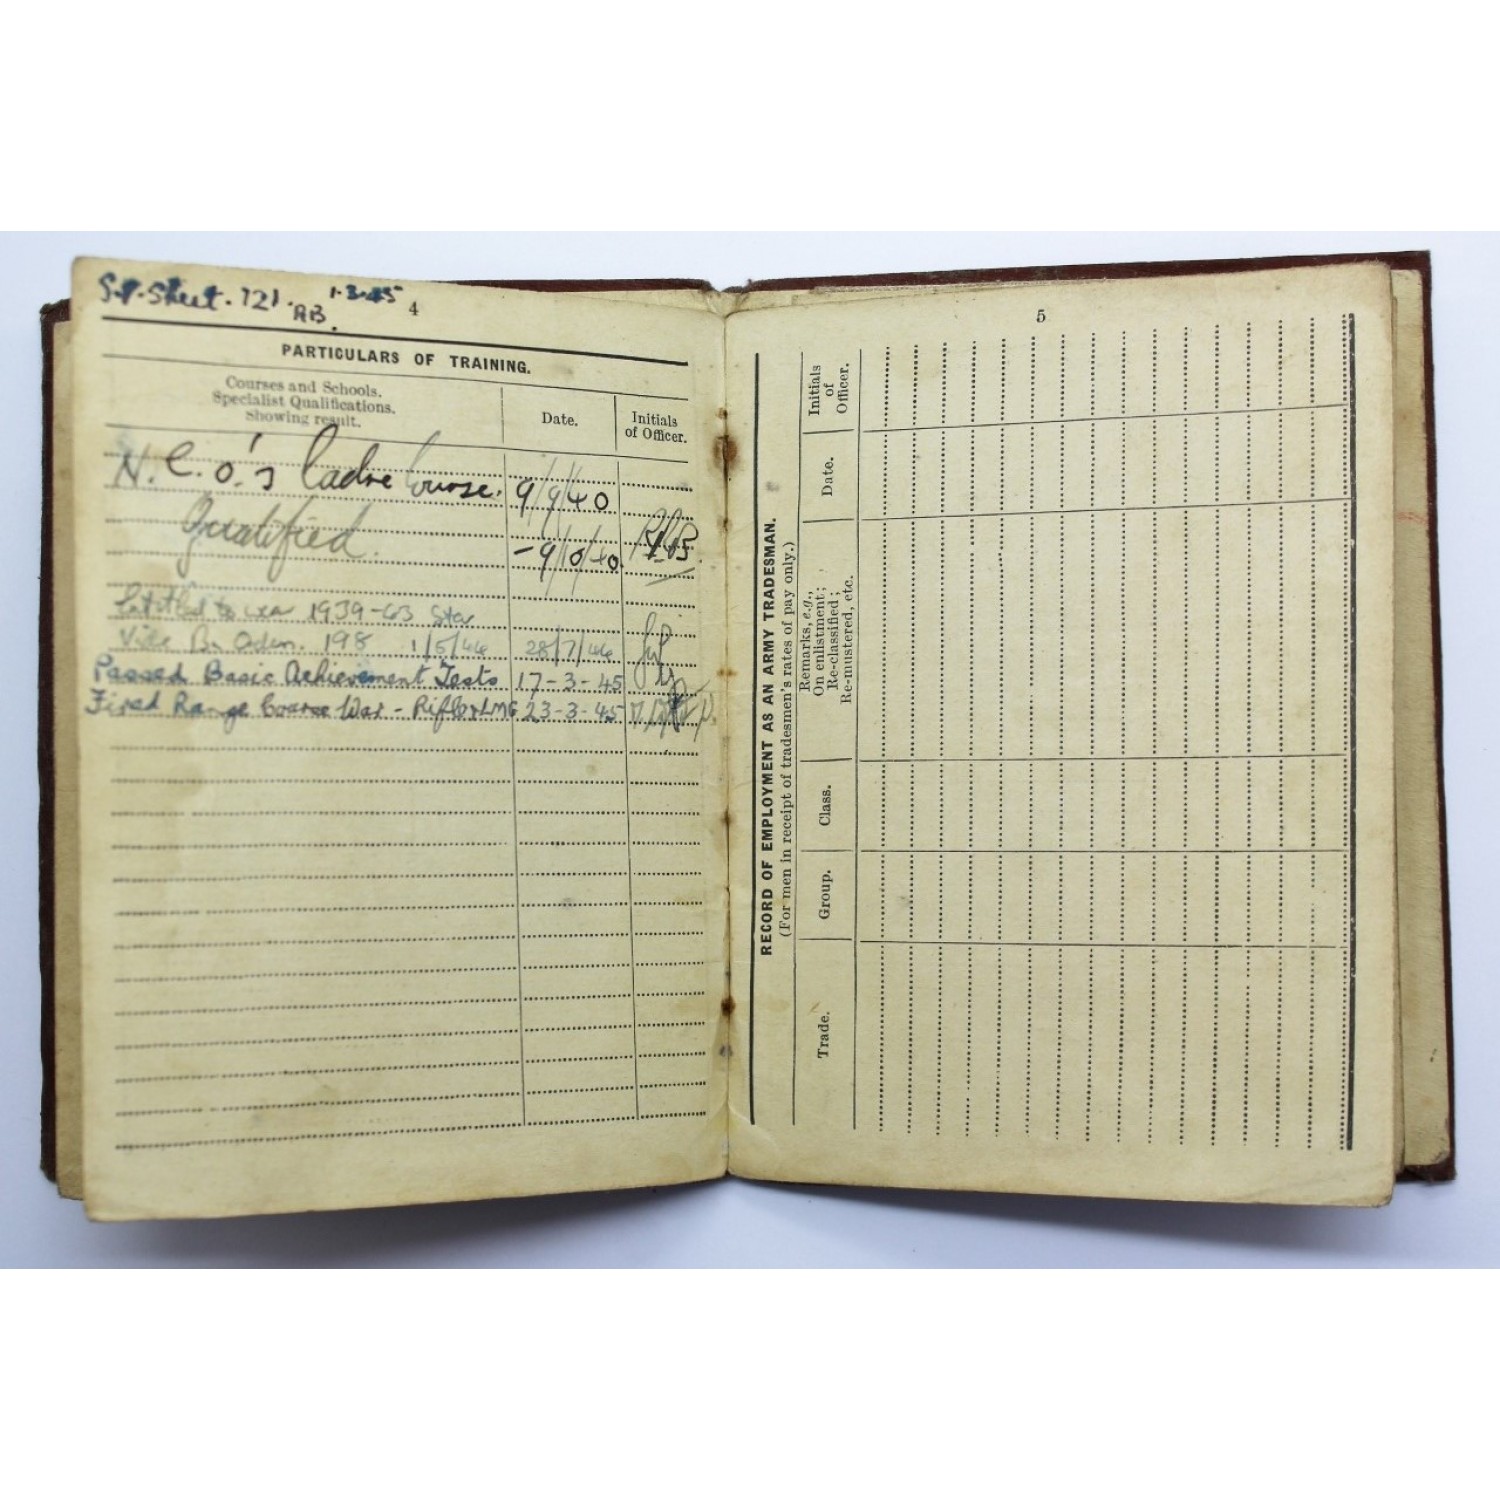 S.P. Sheet. 121. 1.3.45
AB.
4
PARTICULARS OF TRAINING.
Courses and Schools.
Specialist Qualifications.
Showing result.
Date.
Initials
of Officer.
N.C.O.'s Cadre Course. 9/9/40
Qualified. -9/10/40.
Entitled to wear 1939-43 Star
Vide Bn Orders. 198 1/5/44 28/7/44
Passed Basic Achievement Tests 17-3-45
Fired Range Course War - Rifle & LMG 23-3-45
5
RECORD OF EMPLOYMENT AS AN ARMY TRADESMAN.
(For men in receipt of tradesmen's rates of pay only.)
Trade.
Group.
Class.
Remarks, e.g.,
On enlistment;
Re-classified;
Re-mustered, etc.
Date.
Initials
of
Officer.